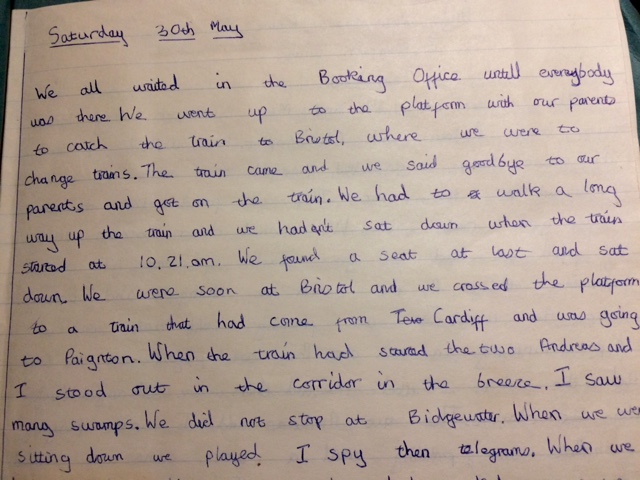 Saturday 30th May
We all waited in the Booking Office untill everybody
was there We went up to the platform with our parents
to catch the train to Bristol, where we were to
change trains. The train came and we said goodbye to our
parents and got on the train. We had to walk a long
way up the train and we hadn't sat down when the train
started at 10.21.am. We found a seat at last and sat
down. We were soon at Bristol and we crossed the platform
to a train that had come from Cardiff and was going
to Paignton. When the train had the two Andreas and
I stood out in the corridor in the breeze. I saw
many swamps. We did not stop at Bidgewater. When we
sitting down we played. I spy then telegrams. When we